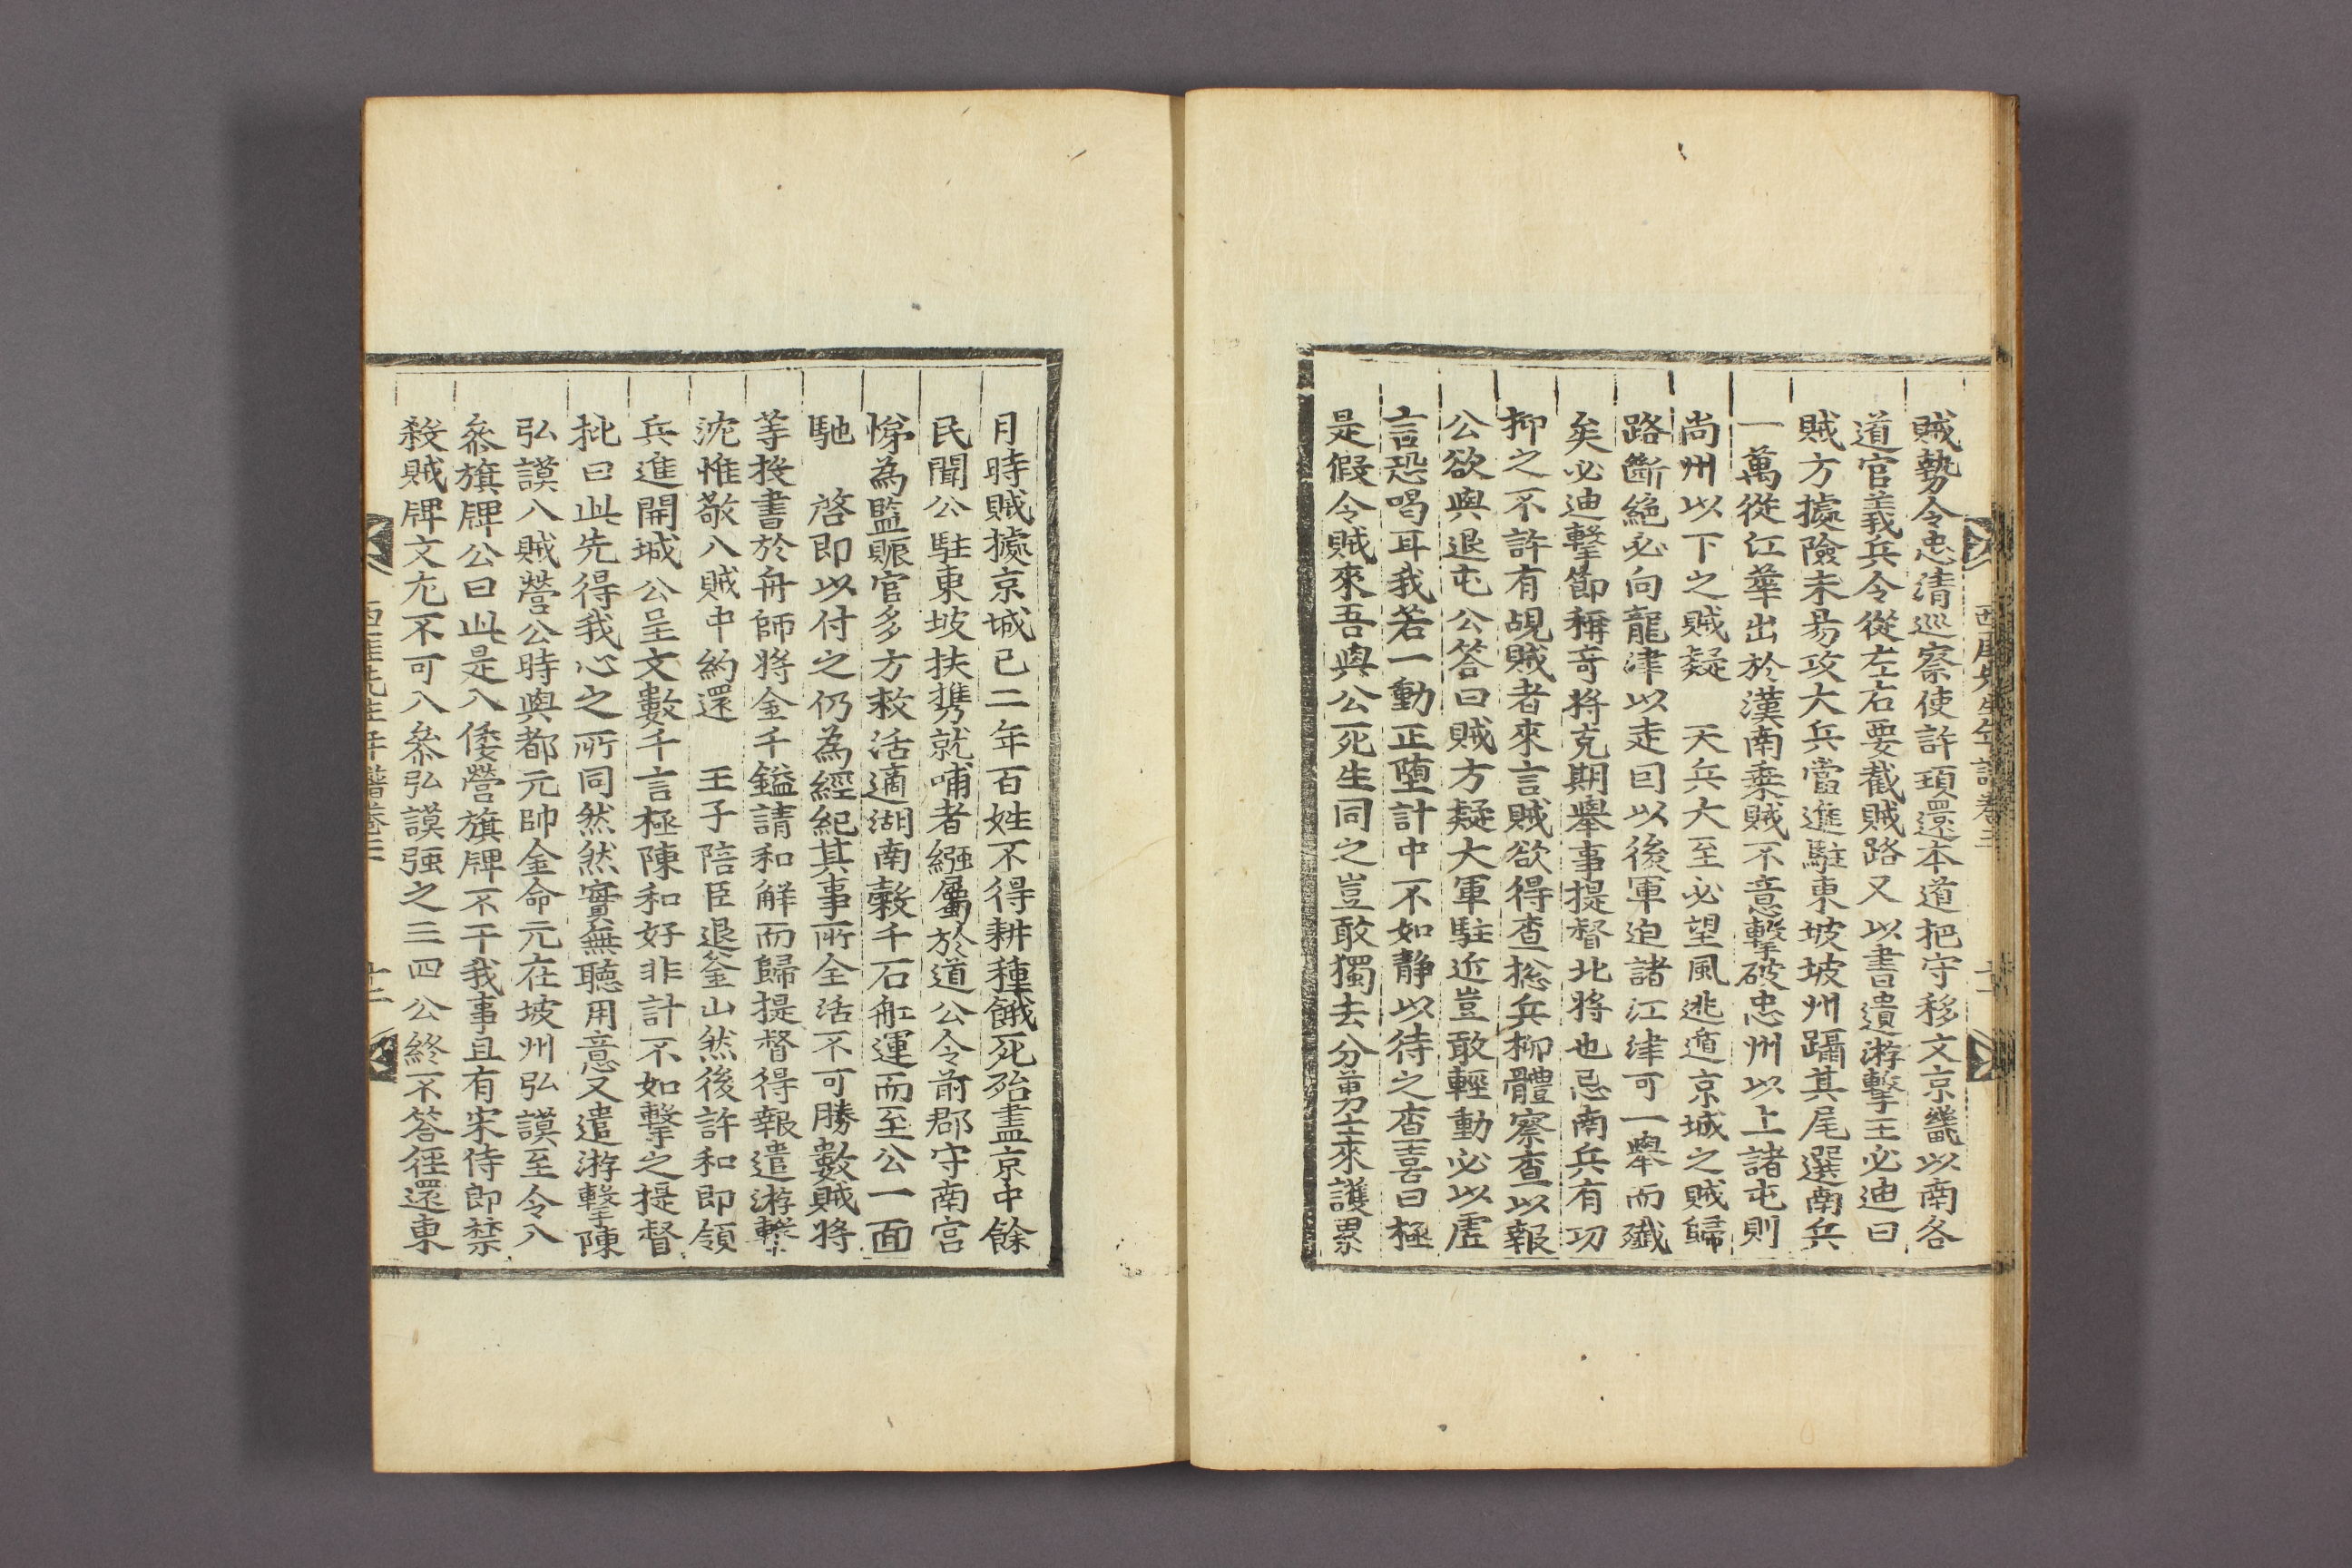 賊勢令忠淸巡察使許頊還本道把守移文京畿以南各
道官義兵令從左右要截賊路又以書遺游擊王必迪曰
賊方據險未易攻大兵當進駐東坡坡州躡其尾選南兵
一萬從江華出於漢南乘賊不意擊破忠州以上諸屯則
尙州以下之賊疑 天兵大至必望風逃遁京城之賊歸
路斷絕必向龍津以走因以後軍迫諸江津可一擧而殲
矣必迪擊節稱奇將克期擧事提督北將也忌南兵有功
抑之不許有覘賊者來言賊欲得査摠兵柳體察査以報
公欲與退屯公答曰賊方疑大軍駐近豈敢輕動必以虛
言恐喝耳我若一動正墮計中不如靜以待之査喜曰極
是假令賊來吾與公死生同之豈敢獨去分勇士來護
西厓先生年譜卷二
月時賊據京城已二年百姓不得耕種餓死殆盡京中餘
民聞公駐東坡扶携就哺者繈屬於道公令前郡守南宮
悌爲監賑官多方救活適湖南穀千石船運而至公一面
馳 啓卽以付之仍爲經紀其事所全活不可勝數賊將
等投書於舟師將金千鎰請和解而歸提督得報遣游擊
沈惟敬入賊中約還 王子陪臣退釜山然後許和卽領
兵進開城公呈文數千言極陳和好非計不如擊之提督
批曰此先得我心之所同然然實無聽用意又遣游擊陳
弘謨入賊營公時與都元帥金命元在坡州弘謨至令入
叅旗牌公曰此是入倭營旗牌不干我事且有宋侍郞禁
殺賊牌文尤不可入叅弘謨强之三四公終不答徑還東
西厓先生年譜卷二
十二